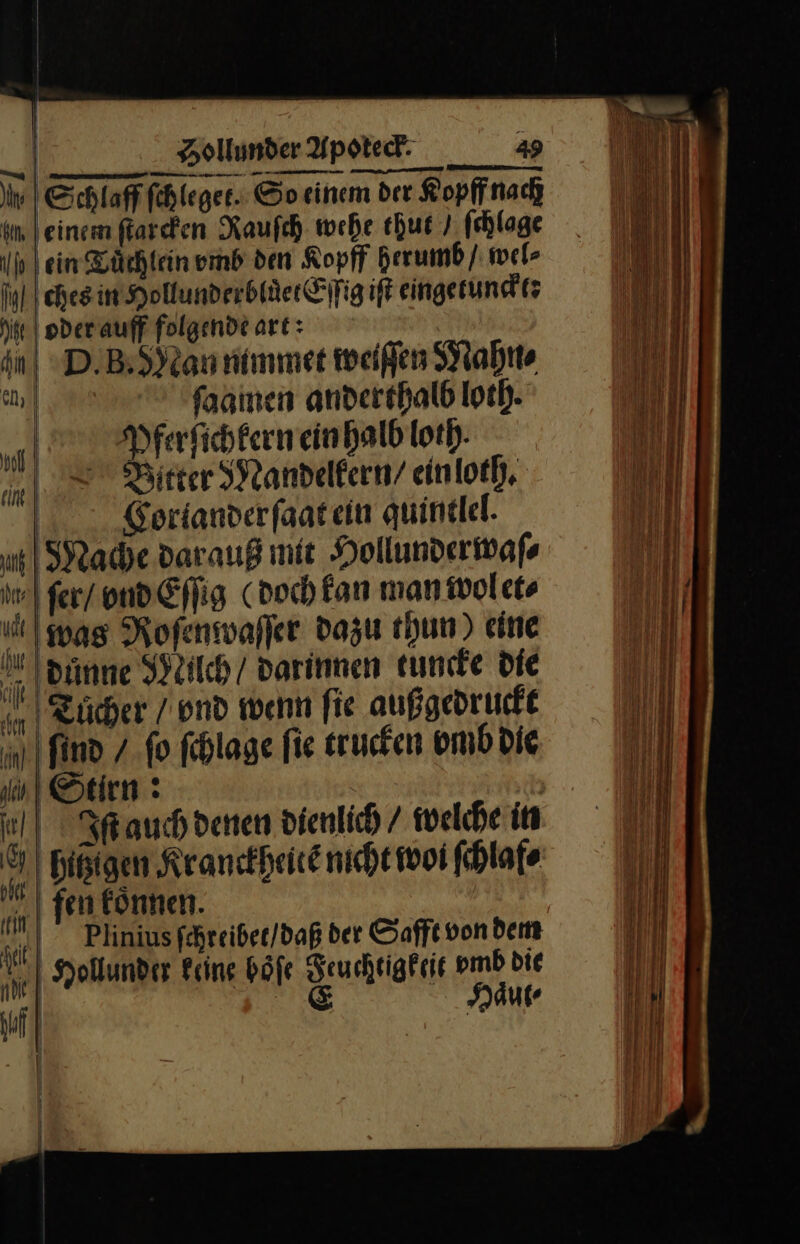 Hollunder Apoteck. 49
Schlaff schleget. So einem der Kopff nach
einem starcken Rausch wehe thut / schlage
ein Tuͤchlein vmb den Kopff herumb / wel-
ches in Hollunderbluͤet Essig ist eingetunckt:
oder auff folgende art:
D. B. Man nimmet weissen Mahn-
saamen anderthalb loth.
Pfersichkern ein halb loth.
Bitter Mandelkern / ein loth.
Coriandersaat ein quintlel.
Mache darauß mit Hollunderwas-
ser / vnd Essig (doch kan man wol et-
was Rosenwasser dazu thun) eine
duͤnne Milch / darinnen tuncke die
Tuͤcher / vnd wenn sie außgedruckt
sind / so schlage sie trucken vmb die
Stirn:
Ist auch denen dienlich / welche in
hitzigen Kranckheitẽ nicht wol schlaf-
fen koͤnnen.
Plinius schreibet / daß der Safft von dem
Hollunder keine boͤse Feuchtigkeit vmb die
E Haͤut-